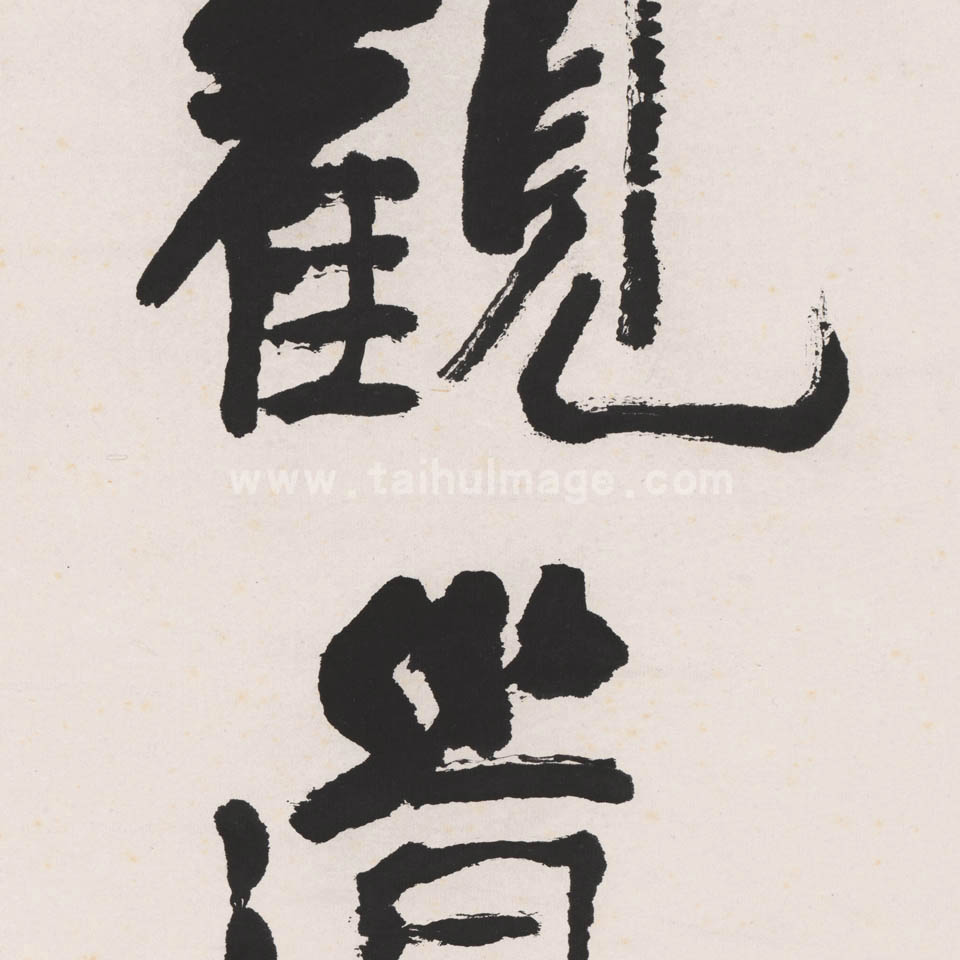 觀
www.taihuImage.com
道